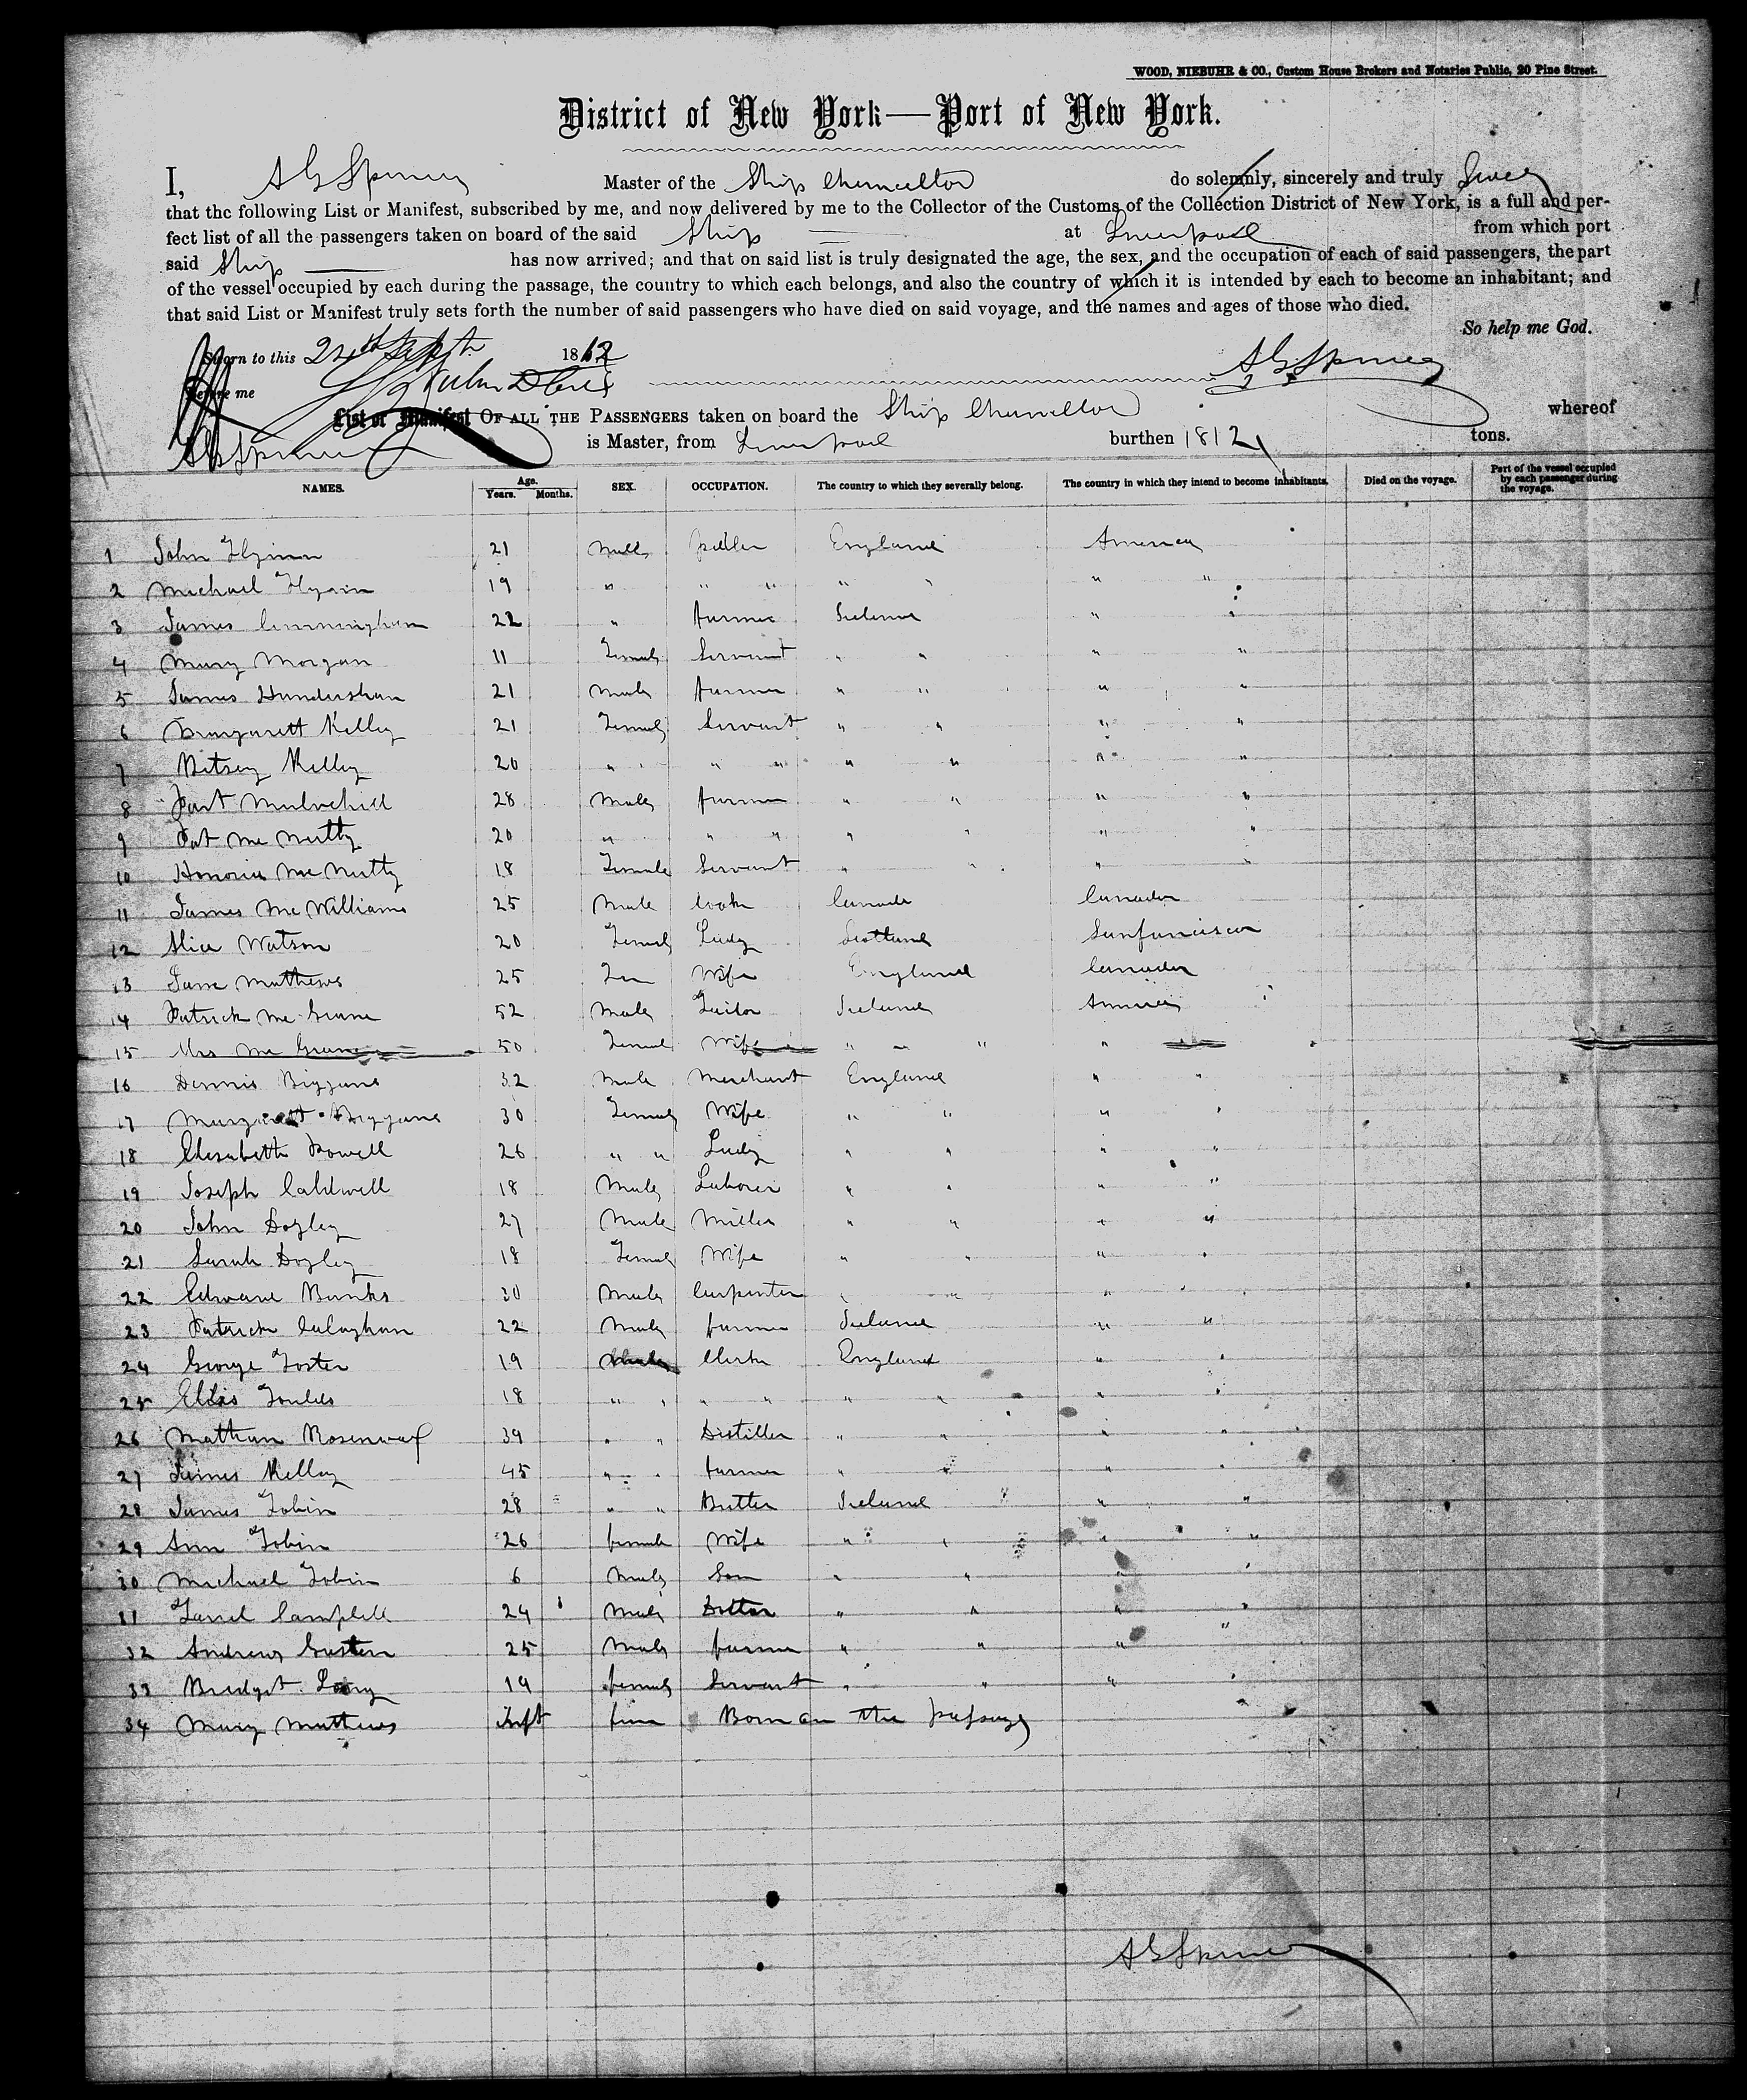 WOOD, NIEBUHR & CO., Custom House Brokers and Notaries Public, 20 Pine Street.
District of New York—Port of New York.
I, A G Spencer Master of the Ship Chancellor do solemnly, sincerely and truly Swear
that the following List or Manifest, subscribed by me, and now delivered by me to the Collector of the Customs of the Collection District of New York, is a full and per-
fect list of all the passengers taken on board of the said Ship at Liverpool from which port
said Ship has now arrived; and that on said list is truly designated the age, the sex, and the occupation of each of said passengers, the part
of the vessel occupied by each during the passage, the country to which each belongs, and also the country of which it is intended by each to become an inhabitant; and
that said List or Manifest truly sets forth the number of said passengers who have died on said voyage, and the names and ages of those who died.
So help me God.
Sworn to this Sept 1862 A G Spencer
Before me
List or Manifest OF ALL THE PASSENGERS taken on board the Ship Chancellor whereof
A G Spencer is Master, from Liverpool burthen 1812 tons.
NAMES. Age. Years. Months. SEX. OCCUPATION. The country to which they severally belong. The country in which they intend to become inhabitants. Died on the voyage. Part of the vessel occupied by each passenger during the voyage.
1 John Flynn 21 Male England America
2 Michael Flynn 19 " " " " " " "
3 James Cunningham 22 " farmer Ireland "
4 Mary Morgan 11 Female Servant " " " "
5 James Hundershan 21 Male farmer " " " "
6 Margarett Kelley 21 Female Servant " " " "
7 Betsey Kelley 20 " " " " " " "
8 Part Mulvehill 28 Male farmer " " " "
9 Pat Mc Nutty 20 " " " " " " "
10 Honoria Mc Nutty 18 Female Servant " " " "
11 James Mc Williams 25 Male Cook Canada Canada
12 Alice Watson 20 Female Lady Scotland Sanfrancisco
13 Jane Mathews 25 Fem Wife England Canada
14 Patrick Mc Grane 52 Male Tailor Ireland America
15 Mrs Mc Grane 50 Female Wife " " "
16 Dennis Biggans 32 Male Merchant England " "
17 Margarett Biggans 30 Female Wife " " " "
18 Elesabeth Powell 26 " " Lady " " " "
19 Joseph Caldwell 18 Male Laborer " " " "
20 John Bogley 27 Male Miller " " " "
21 Sarah Bogley 18 Female Wife " " " "
22 Edward Banks 30 Male Carpenter " " " "
23 Patrick Calaghan 22 Male farmer Ireland " "
24 George Foster 19 Male Clerk England " "
25 Ellis Foulds 18 " " " " " " " "
26 Nathan Rosenwaf 39 " " Distiller " " " "
27 James Kelley 45 " " farmer " " " "
28 James Tobin 28 " " Butler Ireland " "
29 Ann Tobin 26 female Wife " " " "
30 Michael Tobin 6 Male Son " " " "
31 Campbell 24 Male " " " "
32 Andrew 25 Male farmer " " " "
33 Bridget 19 female Servant " " " "
34 Mary Mathews Inft fem Born on the passage
A G Spencer